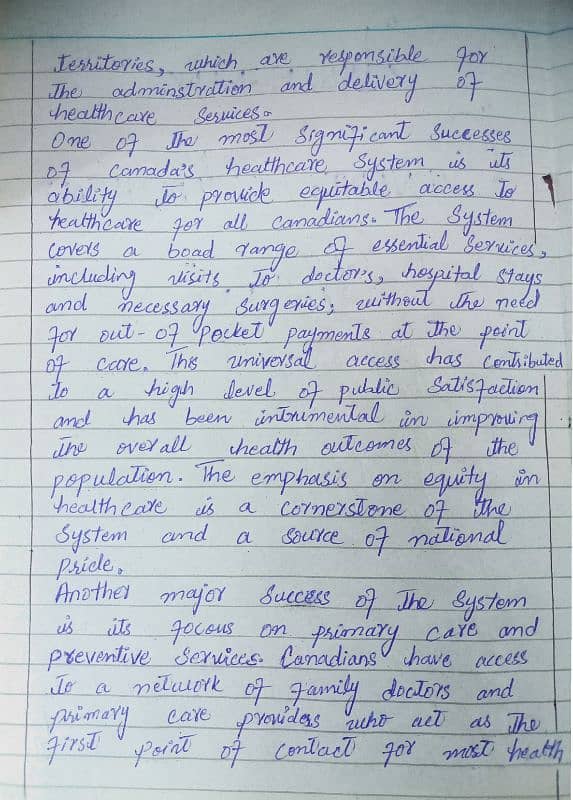 Territories, which are responsible for
The adminstration and delivery of
healthcare Services.
One of The most Significant Successes
of Camada's healthcare System is its
ability To provide equitable access To
healthcare for all Canadians. The System
covers a boad range of essential Services,
including visits To doctor's, hospital stays
and necessary Surgeries, without The need
for out-of pocket payments at The point
of care. This universal access has Contributed
To a high level of public Satisfaction
and has been intrumental in improving
The overall health outcomes of the
population. The emphasis on equity in
healthcare is a cornerstone of The
System and a source of national
Pride.
Another major Success of The System
is its focous on primary care and
preventive Services. Canadians have access
To a network of family doctors and
primary care providers who act as The
first point of contact for most health